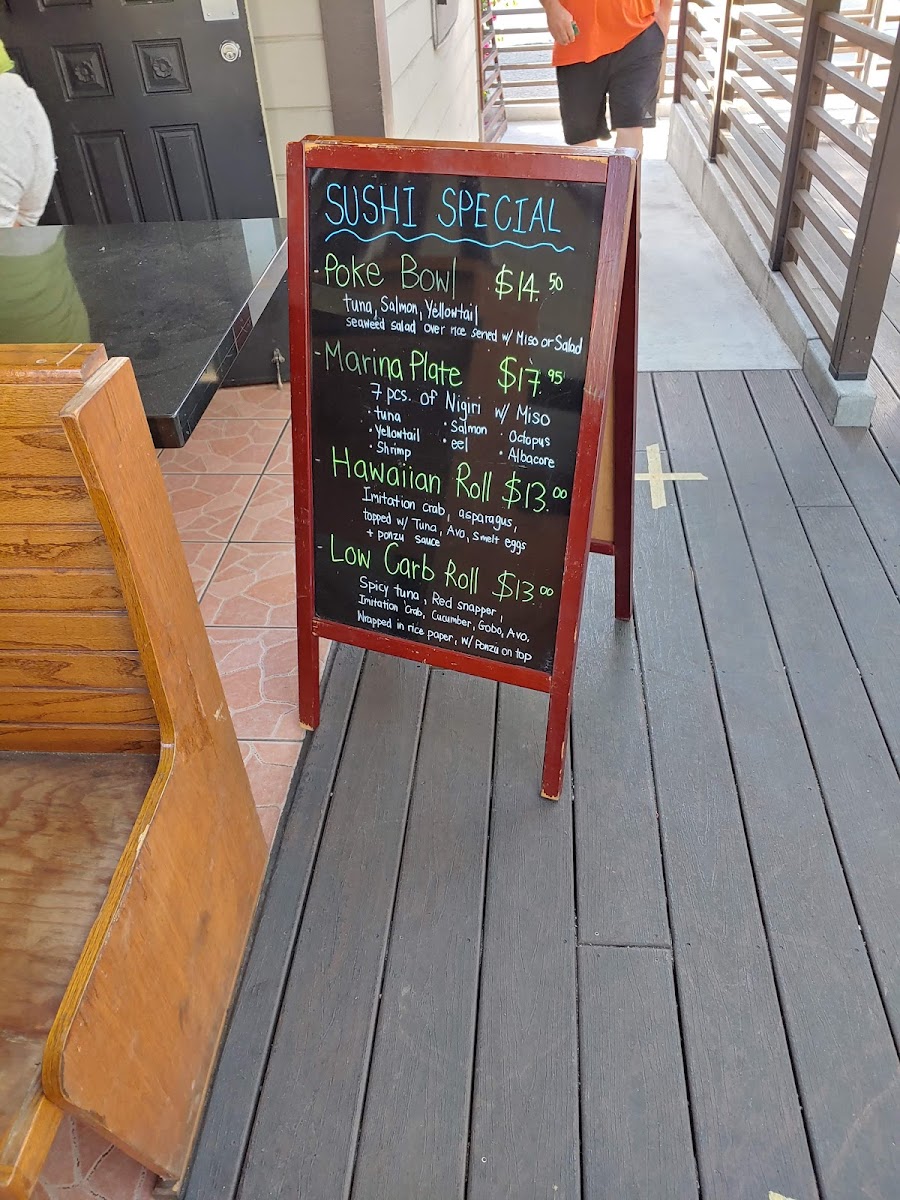 SUSHI SPECIAL
- Poke Bowl $14.50
tuna, Salmon, Yellowtail
seaweed salad over rice served w/ Miso or Salad
- Marina Plate $17.95
7 pcs. of Nigiri w/ Miso
• tuna • Salmon • Octopus
• Yellowtail • eel • Albacore
• Shrimp
- Hawaiian Roll $13.00
Imitation crab, asparagus,
topped w/ Tuna, Avo, smelt eggs
+ ponzu sauce
- Low Carb Roll $13.00
Spicy tuna, Red snapper,
Imitation Crab, Cucumber, Gobo, Avo,
Wrapped in rice paper, w/ Ponzu on top